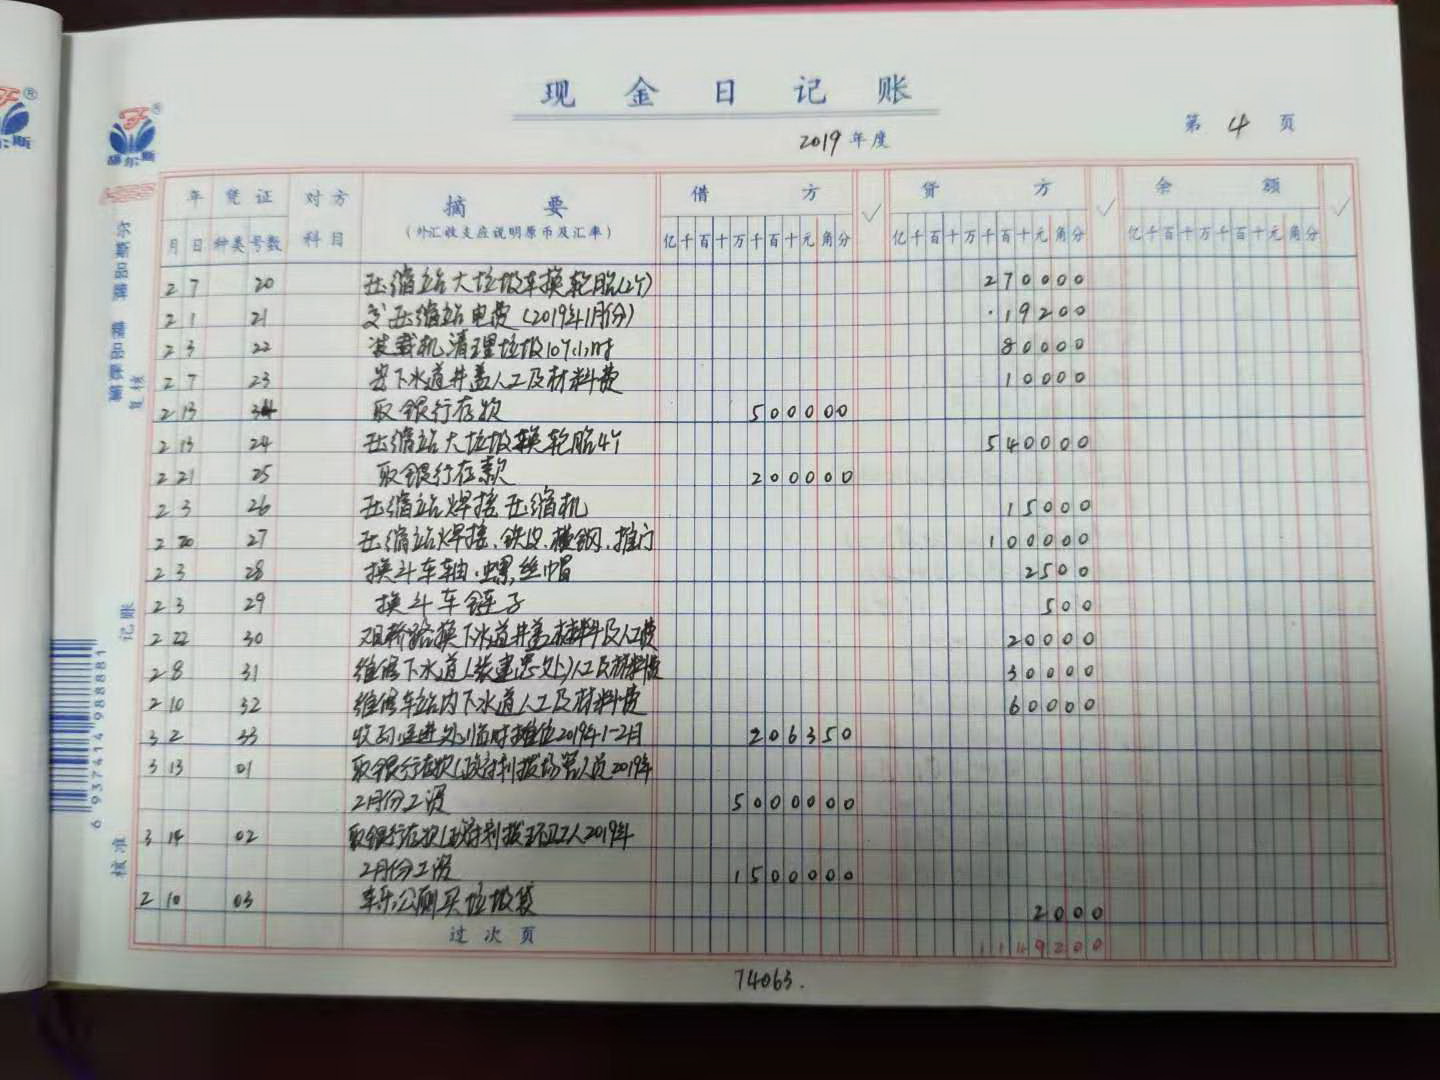 现金日记账
2019年度
第 4 页
年 凭证 对方 摘要 借方 贷方 余额
月 日 种类 号数 科目 (外汇收支应说明原币及汇率) 亿千百十万千百十元角分 亿千百十万千百十元角分 亿千百十万千百十元角分
2 7 20 压缩站大垃圾车换轮胎(2个) 270000
2 1 21 交压缩站电费(2019年1月份) 19200
2 3 22 装载机清理垃圾10个小时 80000
2 7 23 安下水道井盖人工及材料费 10000
2 13 34 取银行存款 500000
2 13 24 压缩站大垃圾换轮胎4个 540000
2 21 25 取银行存款 200000
2 3 26 压缩站焊接压缩机 15000
2 20 27 压缩站焊接、铁皮、横钢、推门 100000
2 3 28 换斗车轴、螺丝帽 2500
2 3 29 换斗车链子 500
2 22 30 双桥路换下水道井盖材料及人工费 20000
2 8 31 维修下水道(张建忠处)人工及材料费 30000
2 10 32 维修车站内下水道人工及材料费 60000
3 2 33 收到 进处临时摊位2019年1-2月 206350
3 13 01 取银行存款(政府划拨场管人员2019年
2月份工资 5000000
3 14 02 取银行存款(政府划拨环卫工人2019年
2月份工资 1500000
2 10 03 车乐公厕买垃圾袋 2000
过次页 1149200
74063.
复核
记账
核准
6 937414 988881